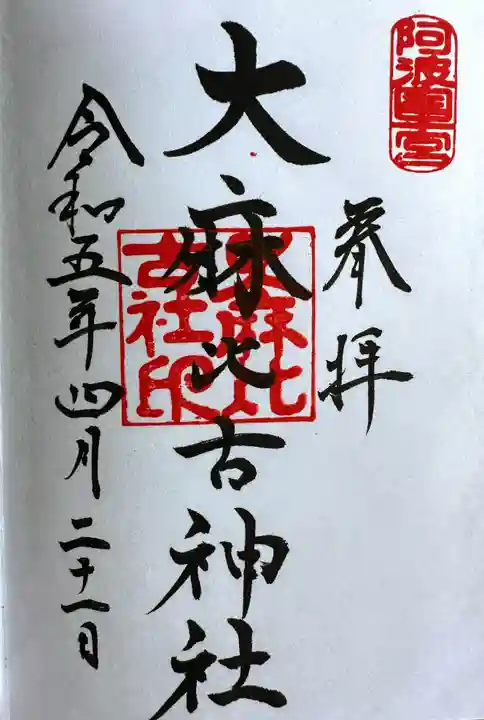 阿波國一宮
奉拝
大麻比古神社
大麻比古社印
令和五年四月二十一日